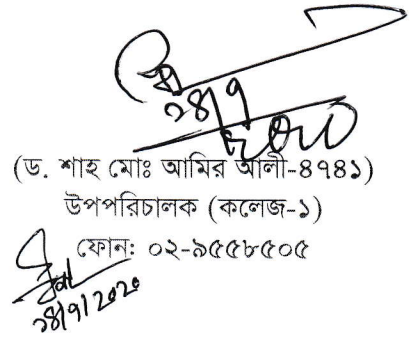 ২৪/৭
২০২০
(ড. শাহ মোঃ আমির আলী-৪৭৪১)
উপপরিচালক (কলেজ-১)
ফোন: ০২-৯৫৫৮৫০৫
২৪/৭/২০২০